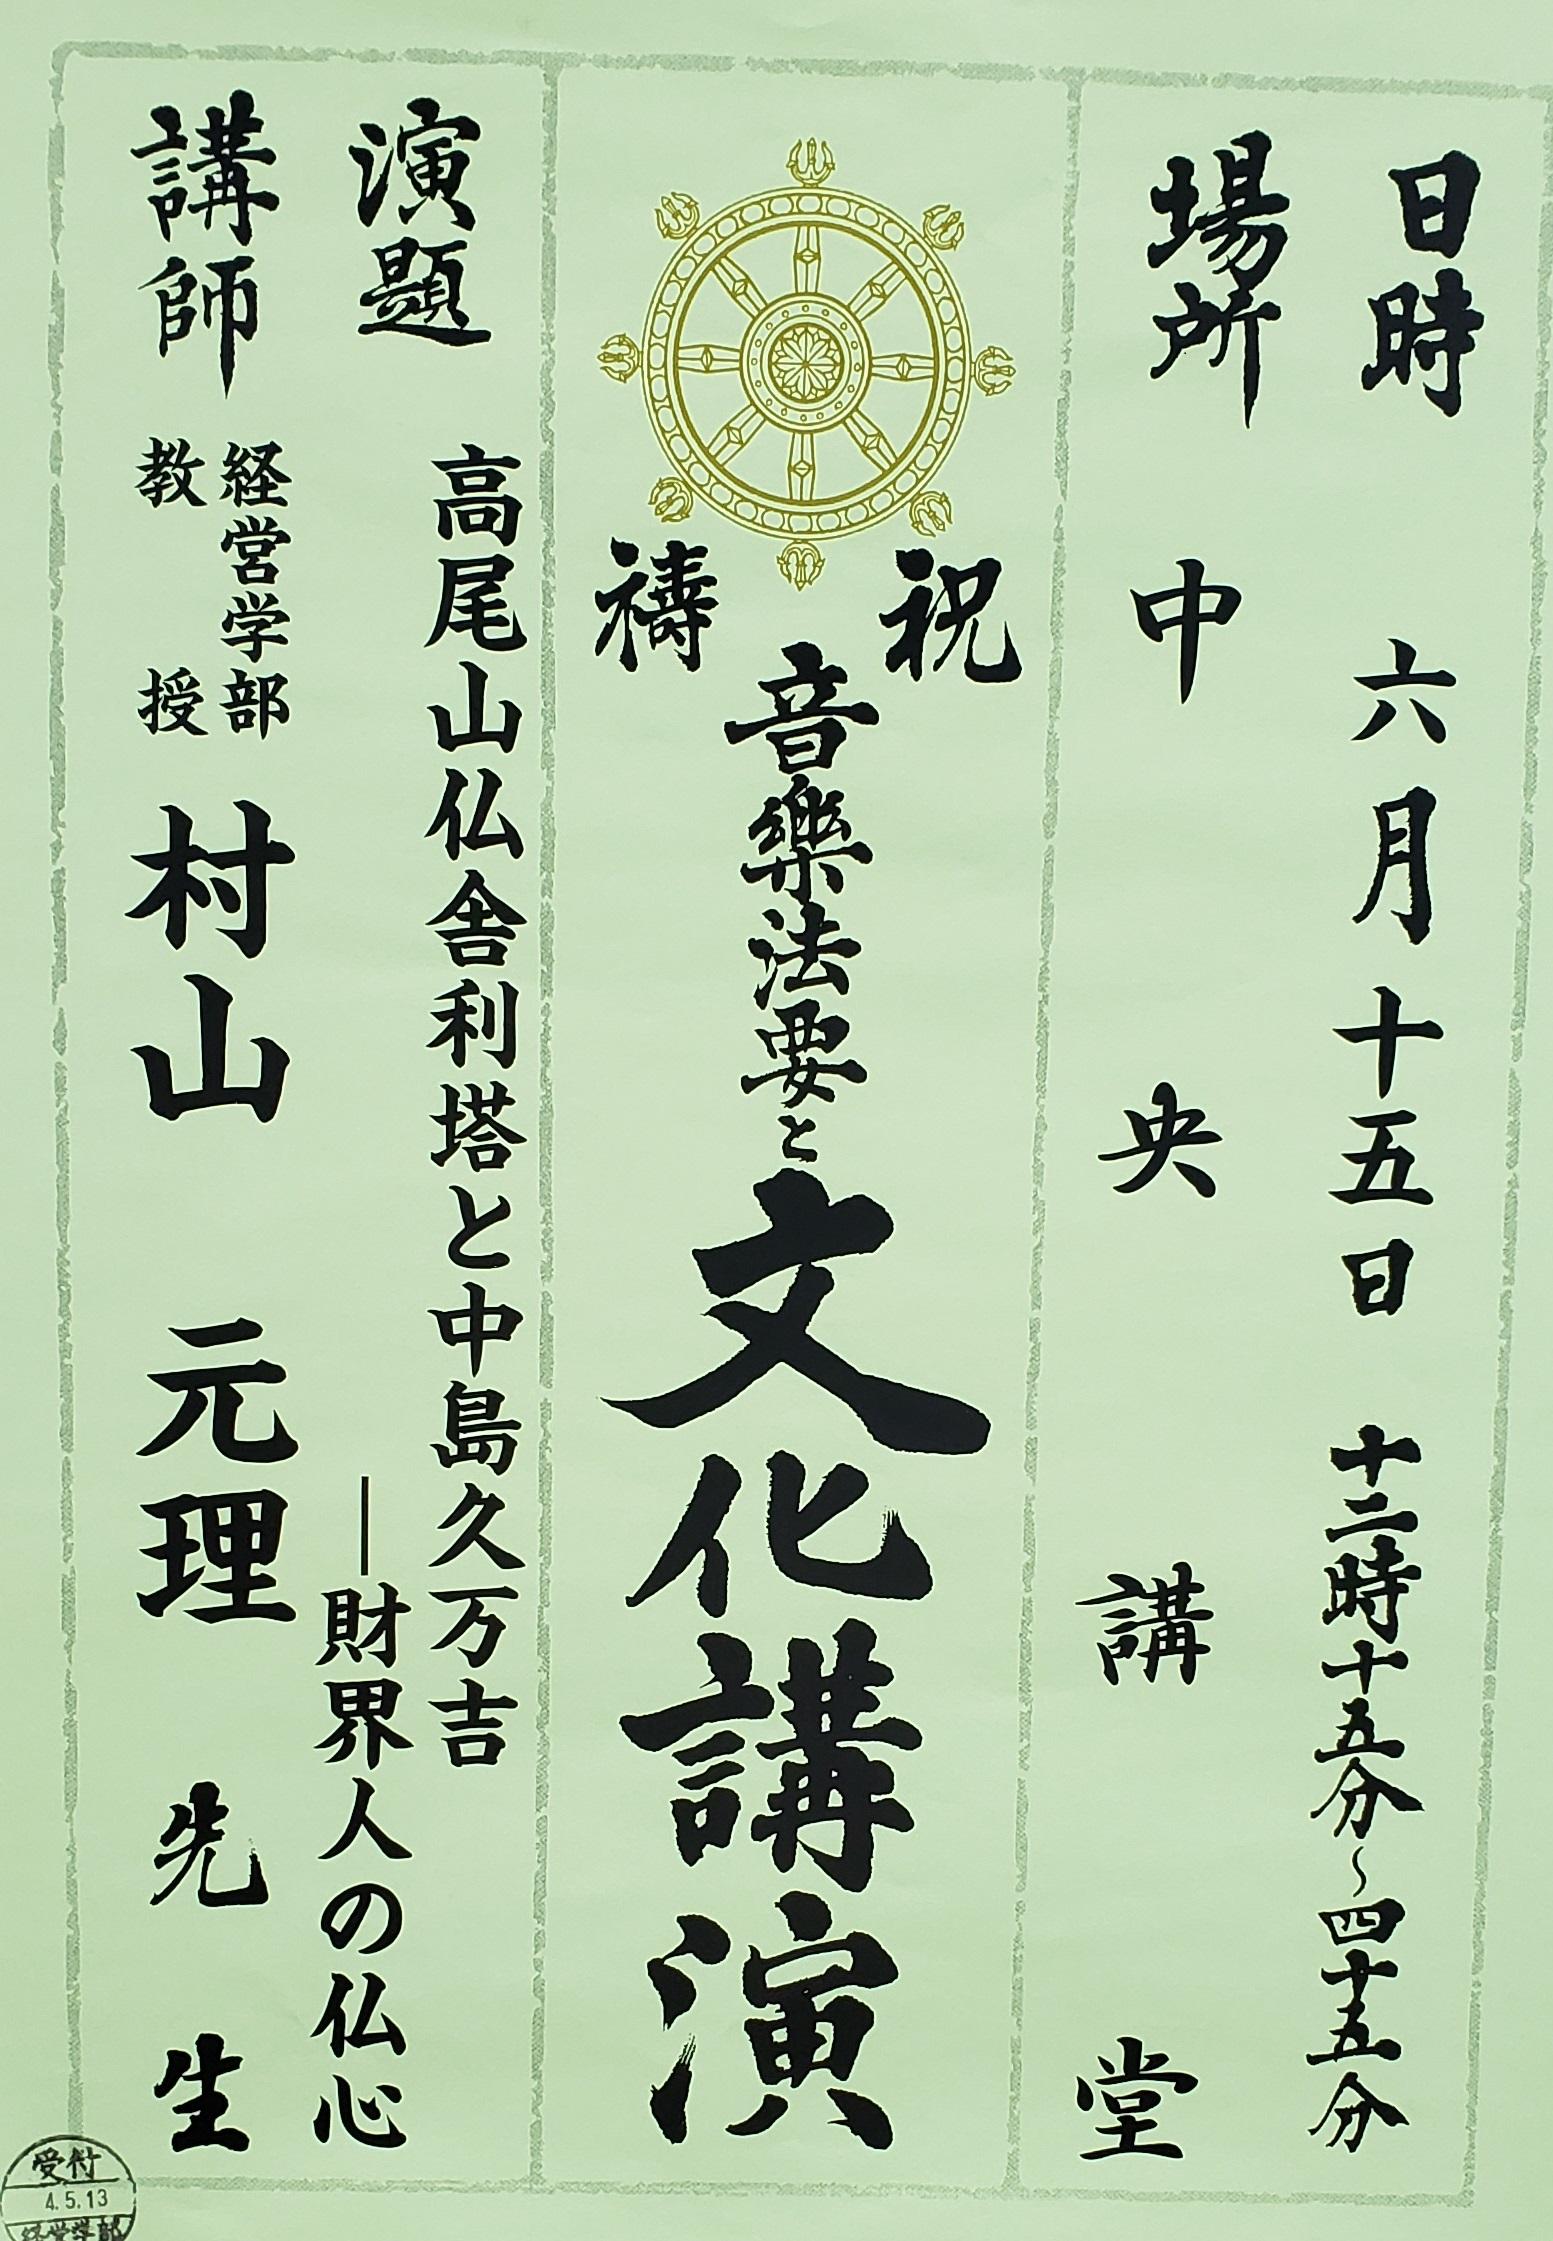 日時　六月十五日　十二時十五分～四十五分
場所　中央講堂
祝禱
音樂法要と文化講演
演題　高尾山仏舎利塔と中島久万吉
―財界人の仏心
講師　経営学部
教授
村山　元理　先生
受付
4.5.13
経営学部